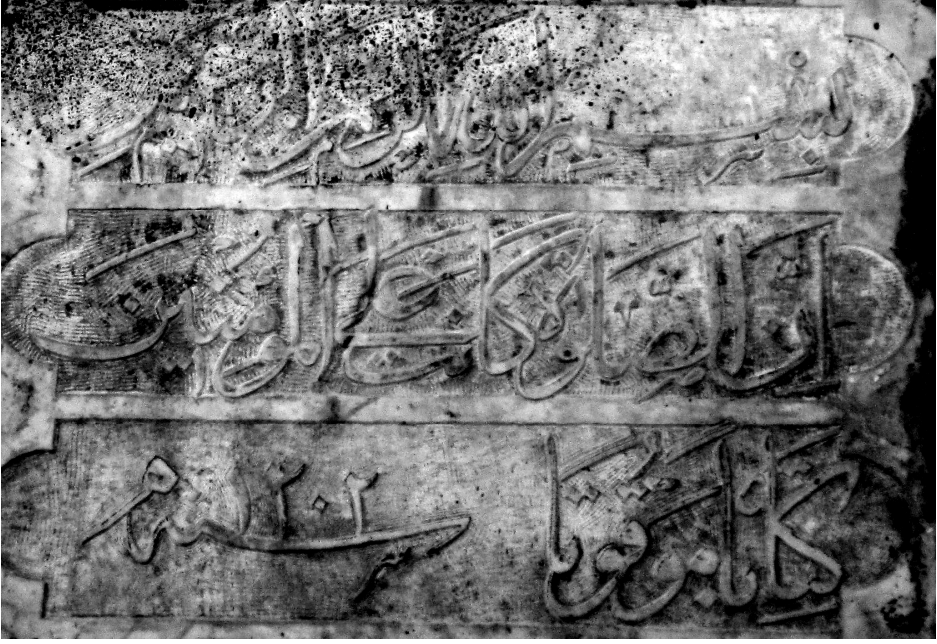 بسم الله الرحمن الرحيم
ان الصلوة كانت على المؤمنين
كتابا موقوتا سنه ٢٠٢